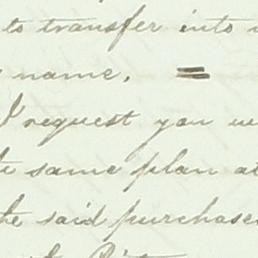 to transfer into
name. =
I request you
same plan at
the said purchase